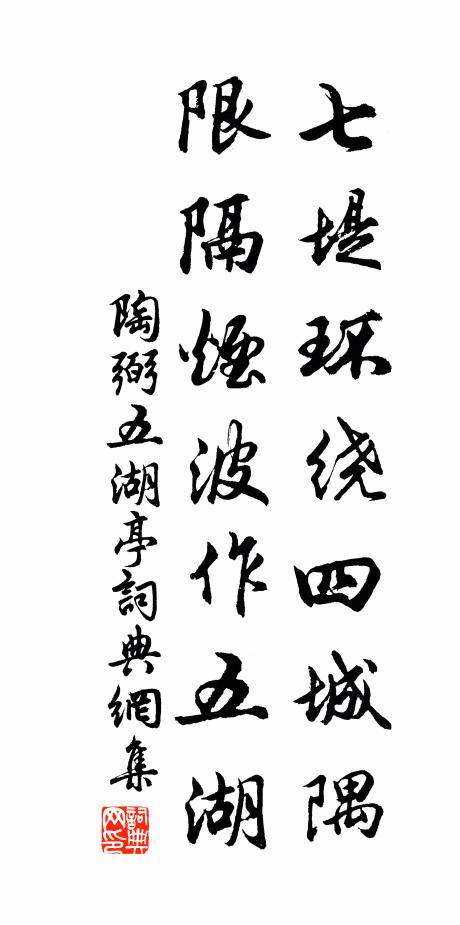 七堤环绕四城隅
限隔煙波作五湖
陶弼五湖亭詞典網集
詞典网印